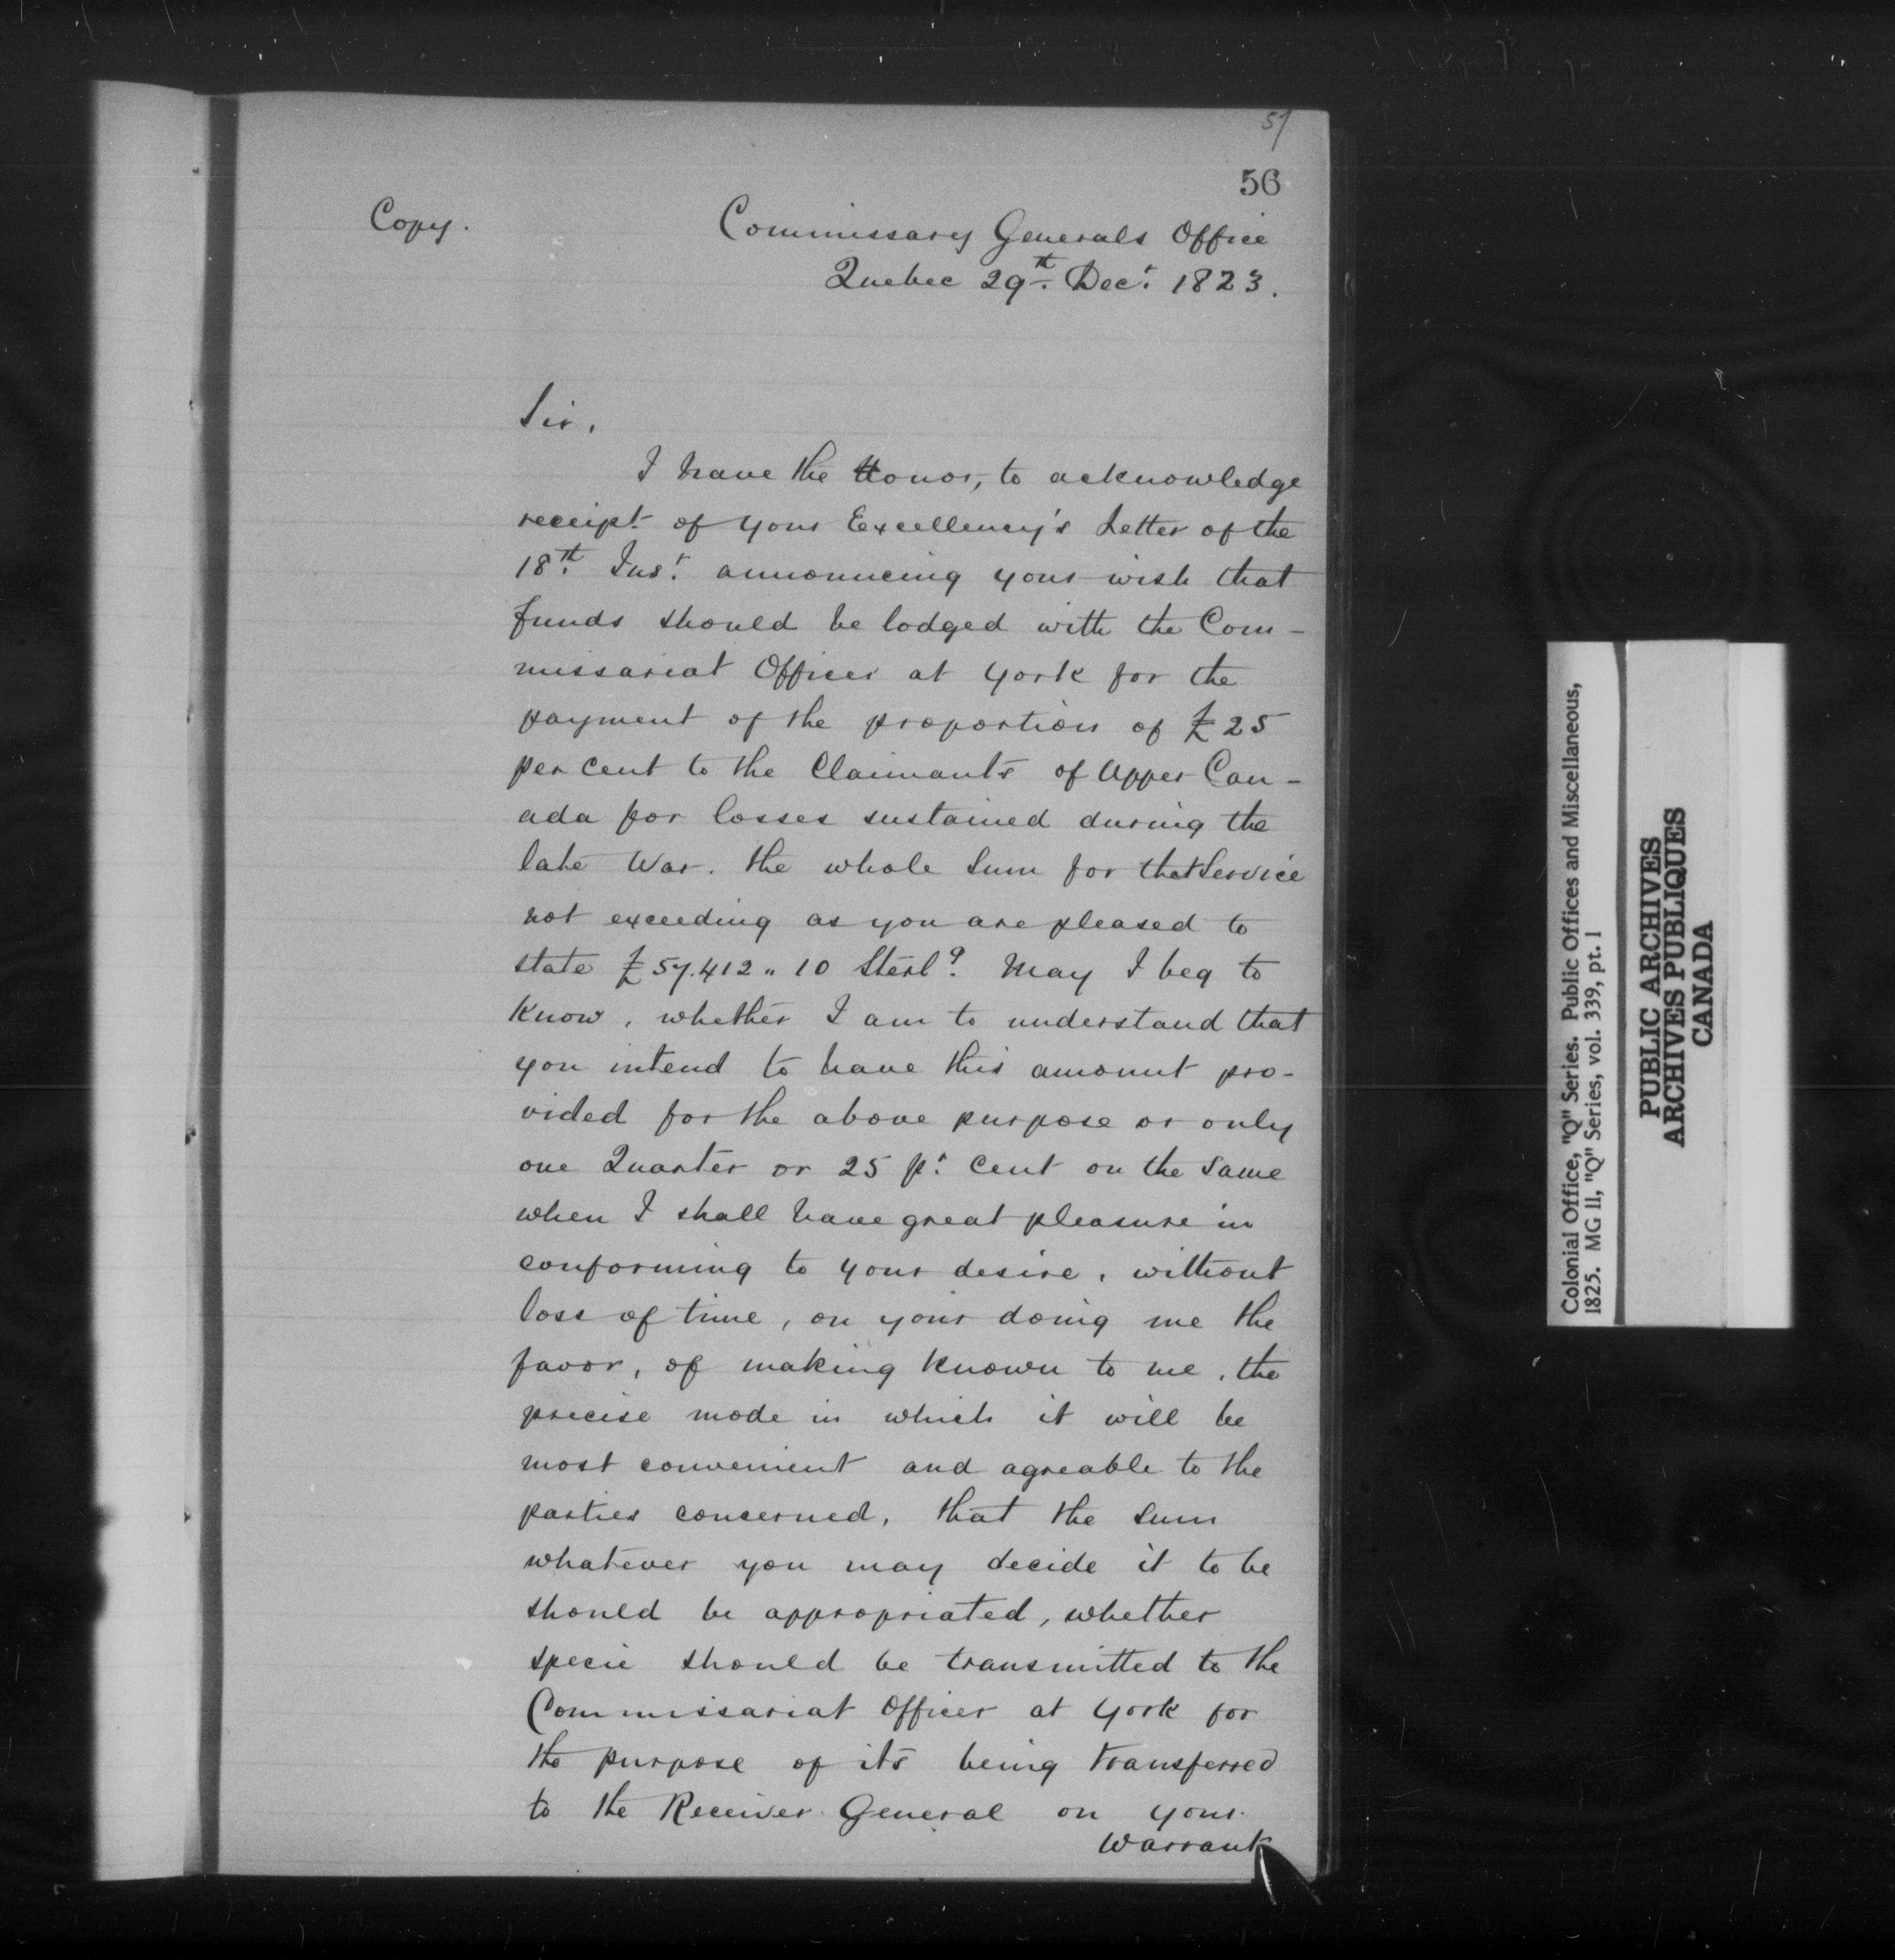 57
56
Copy.
Commissary Generals Office
Quebec 29th. Decr. 1823.
Sir,
I have the Honor, to acknowledge
receipt of your Excellency's Letter of the
18th. Inst. announcing your wish that
funds should be lodged with the Com-
missariat Officer at York for the
payment of the proportion of £25
per cent to the Claimants of Upper Can-
ada for losses sustained during the
late War. the whole Sum for that Service
not exceeding as you are pleased to
state £57.412 " 10 Sterlg. May I beg to
Know, whether I am to understand that
you intend to have this amount pro-
vided for the above purpose or only
one Quarter or 25 pr. Cent on the Same
when I shall have great pleasure in
conforming to your desire, without
loss of time, on your doing me the
favor, of making known to me, the
precise mode in which it will be
most convenient and agreable to the
parties concerned, that the Sum
whatever you may decide it to be
should be appropriated, whether
specie should be transmitted to the
Commissariat Officer at York for
the purpose of its being transferred
to the Receiver General on your
Warrant
Colonial Office, "Q" Series. Public Offices and Miscellaneous,
1825. MG 11, "Q" Series, vol. 339, pt. 1
PUBLIC ARCHIVES
ARCHIVES PUBLIQUES
CANADA